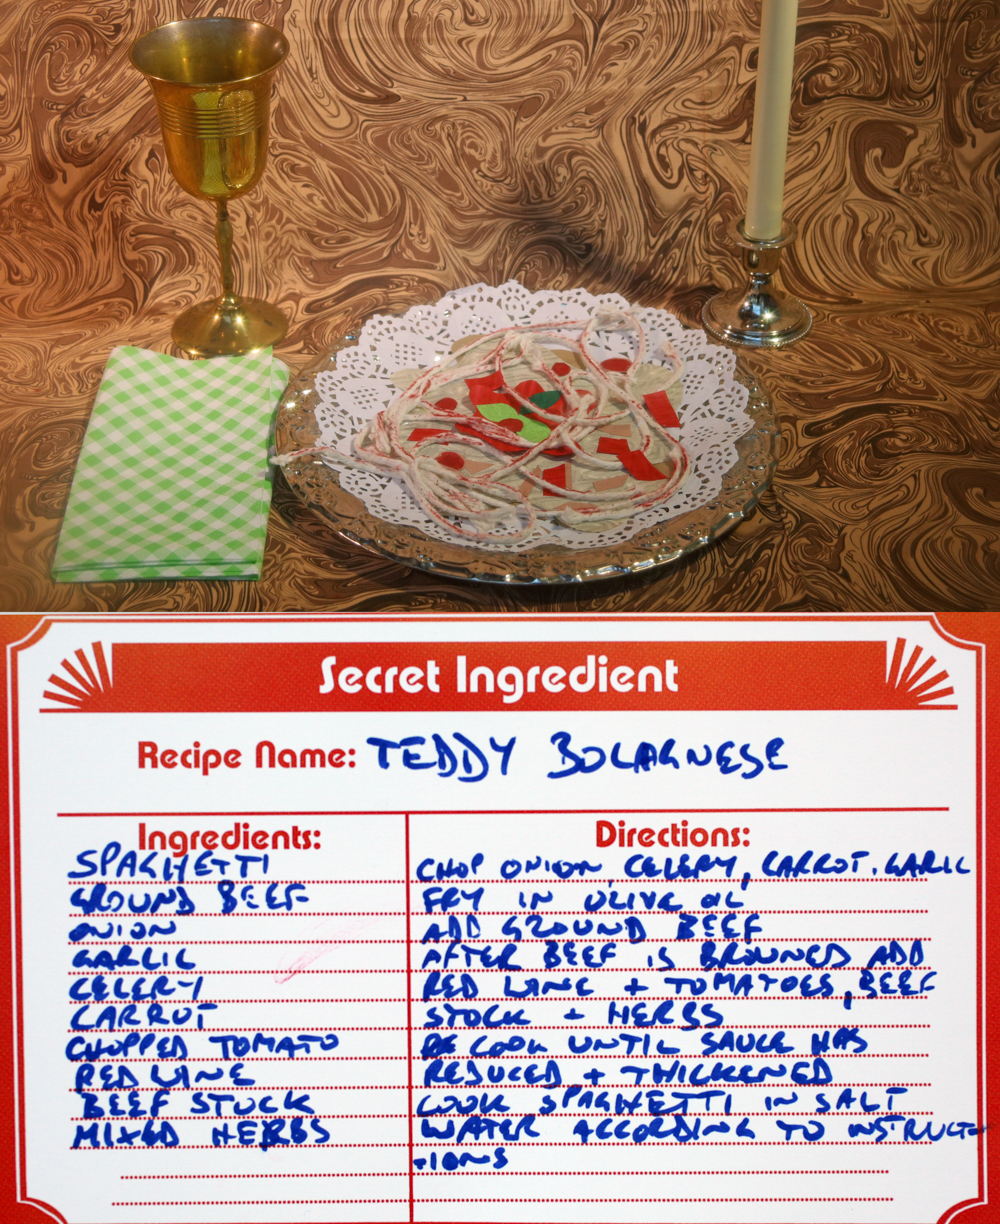 Secret Ingredient
Recipe Name: TEDDY BOLAGNESE
Ingredients:
SPAGHETTI
GROUND BEEF
ONION
GARLIC
CELERY
CARROT
CHOPPED TOMATO
RED WINE
BEEF STOCK
MIXED HERBS
Directions:
CHOP ONION, CELERY, CARROT, GARLIC
FRY IN OLIVE OIL
ADD GROUND BEEF
AFTER BEEF IS BROWNED ADD
RED WINE + TOMATOES, BEEF
STOCK + HERBS
COOK UNTIL SAUCE HAS
REDUCED + THICKENED
COOK SPAGHETTI IN SALT
WATER ACCORDING TO INSTRUCT-
-IONS